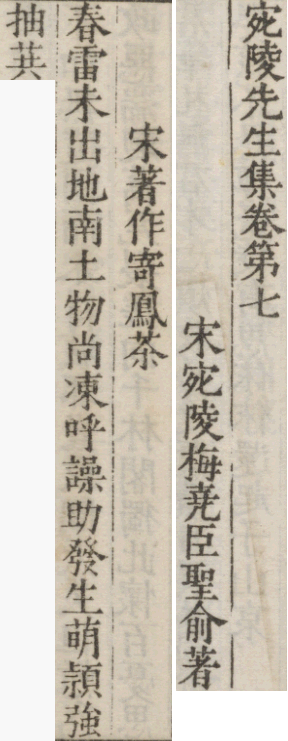 宛陵先生集卷第七
宋宛陵梅堯臣聖俞著
宋著作寄鳳茶
春雷未出地南土物尚凍呼譟助發生萌頴強
抽茻